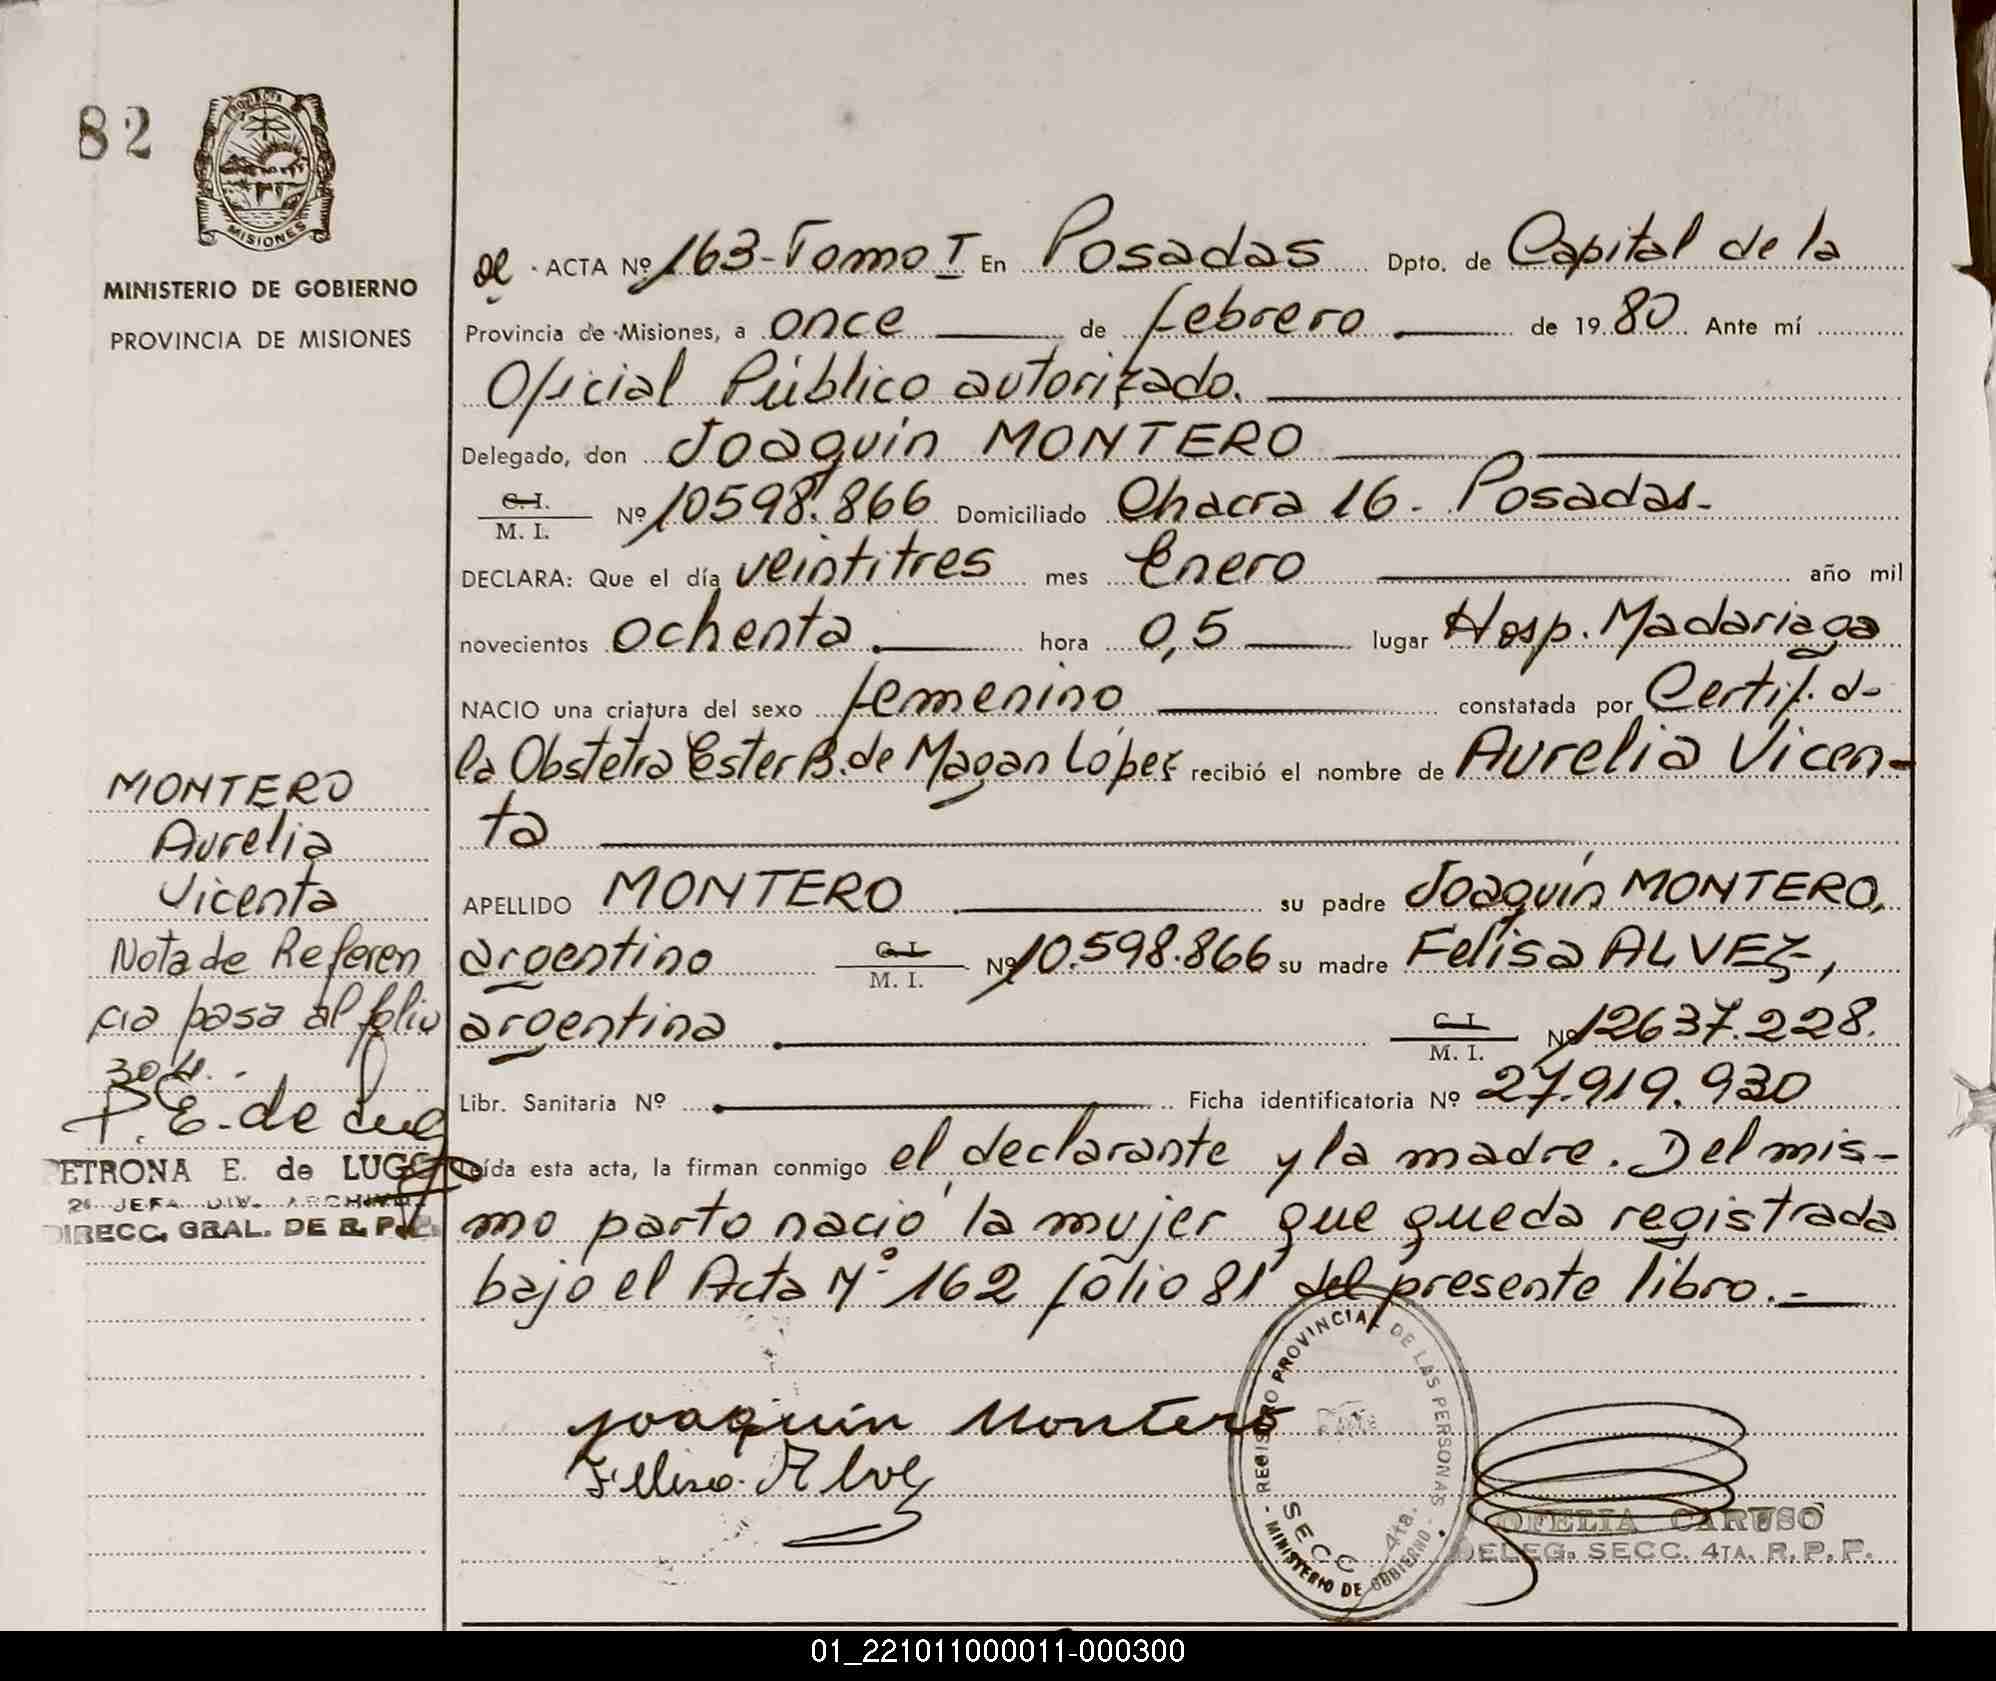 82
PROVINCIA
MISIONES
MINISTERIO DE GOBIERNO
PROVINCIA DE MISIONES
MONTERO
Aurelia
Vicenta
Nota de Referen
cia pasa al folio
304.-
P. E. de Lug
PETRONA E. de LUGO
2a JEFA DIV. ARCHIVO
DIRECC. GRAL. DE R. P.
ACTA Nº 163-Tomo I En Posadas Dpto. de Capital de la
Provincia de Misiones, a once de febrero de 1980 Ante mí
Oficial Público autorizado.
Delegado, don Joaquín MONTERO
C.I. / M. I. Nº 10598.866 Domiciliado Chacra 16. Posadas.
DECLARA: Que el día veintitres mes Enero año mil
novecientos ochenta. hora 0,5 lugar Hosp. Madariaga
NACIO una criatura del sexo femenino constatada por Certif. d-
la Obstetra Ester B. de Magan López recibió el nombre de Aurelia Vicen-
ta
APELLIDO MONTERO su padre Joaquín MONTERO,
argentino C.I. / M. I. Nº 10.598.866 su madre Felisa ALVEZ,
argentina C.I. / M. I. Nº 12637.228.
Libr. Sanitaria Nº Ficha identificatoria Nº 27.919.930
Leída esta acta, la firman conmigo el declarante y la madre. Del mis-
mo parto nació la mujer que queda registrada
bajo el Acta Nº 162 folio 81 del presente libro.-
Joaquín Montero
Felisa Alvez
REGISTRO PROVINCIAL DE LAS PERSONAS
SECC 4ta.
MINISTERIO DE GOBIERNO
OFELIA CARUSO
DELEG. SECC. 4TA. R. P. P.
01_221011000011-000300